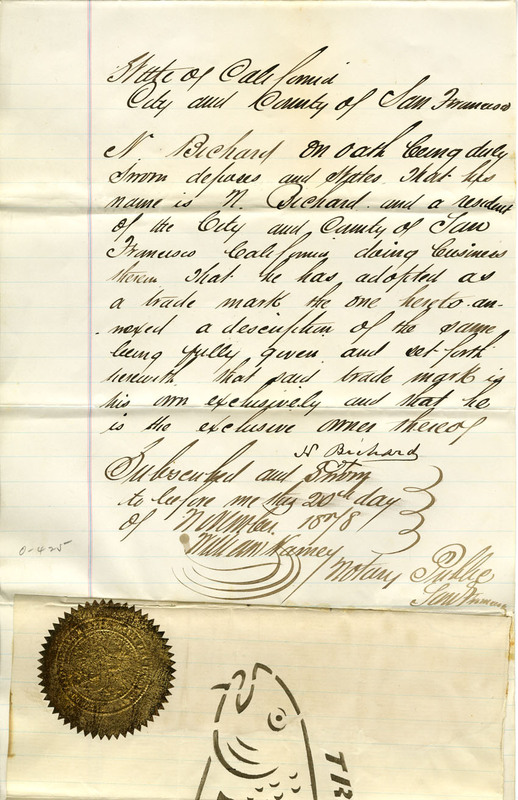 State of California
City and County of San Francisco
N Bichard on oath being duly
sworn deposes and states That his
name is N. Bichard. and a resident
of the City and County of San
Francisco California doing business
therein That he has adopted as
a trade mark the one hereto an-
-nexed a description of the same
being fully given and set forth
herewith that said trade mark is
his own exclusively and that he
is the exclusive owner thereof
N Bichard
Subscribed and Sworn
to before me this 20th day
of November 1878
William Harney
Notary Public
San Francisco
0-425
TR